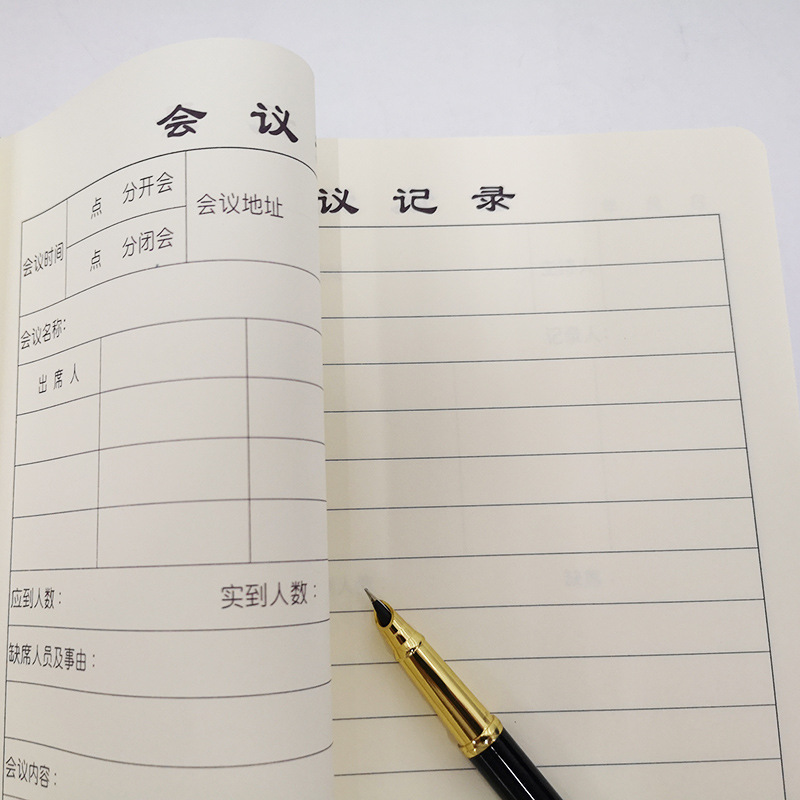 会 议
点 分开会
会议地址
会议时间
点 分闭会
会议名称：
出 席 人
应到人数：
实到人数：
缺席人员及事由：
会议内容：
议 记 录